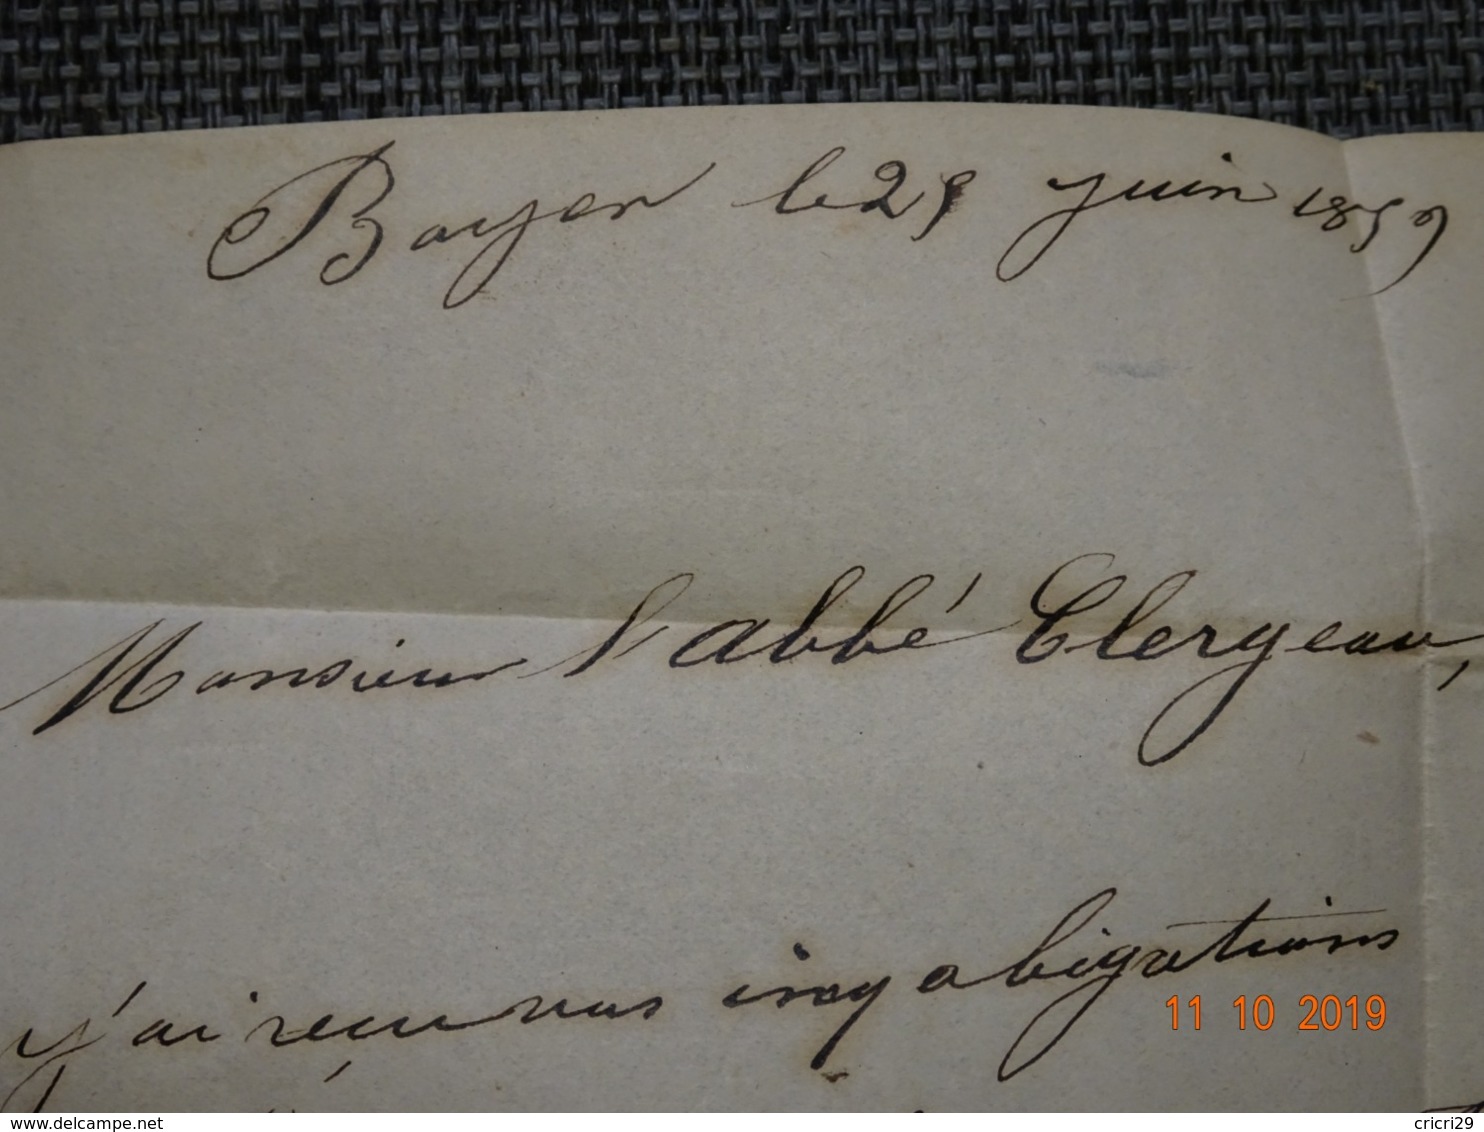 Bayon le 29 juin 1859
Monsieur l'abbé Clergeau,
j'ai recu vos cinq obligations
11 10 2019
www.delcampe.net
cricri29